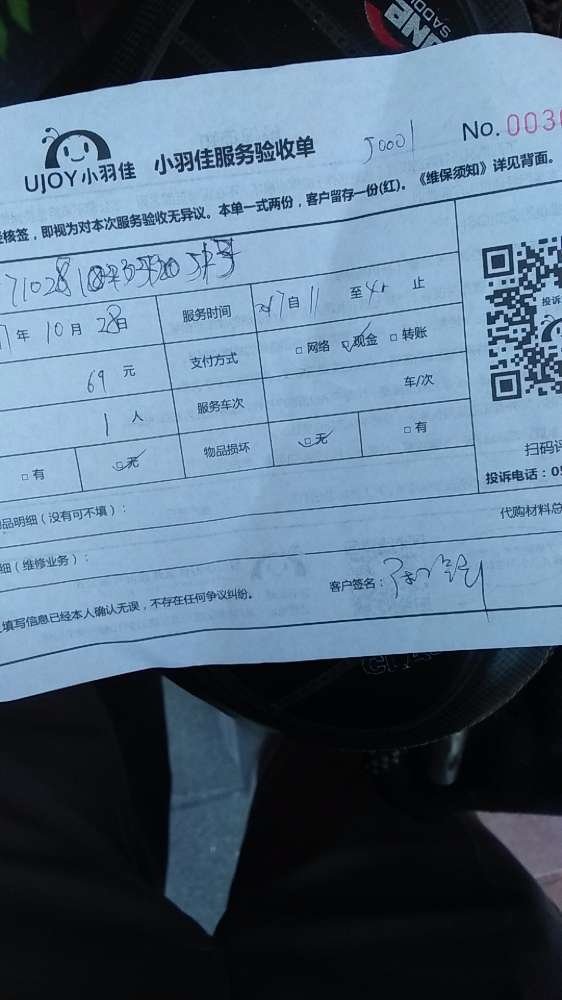 UJOY小羽佳 小羽佳服务验收单 J0001 No. 003
核签，即视为对本次服务验收无异议。本单一式两份，客户留存一份(红)。《维保须知》详见背面。
71028
年 10 月 28日 服务时间 自 11 至 止
69 元 支付方式 □网络 ☑现金 □转账
1 人 服务车次 车/次
□有 ☑无 物品损坏 ☑无 □有
扫码评
投诉电话：05
品明细（没有可不填）： 代购材料总
细（维修业务）：
填写信息已经本人确认无误，不存在任何争议纠纷。 客户签名：